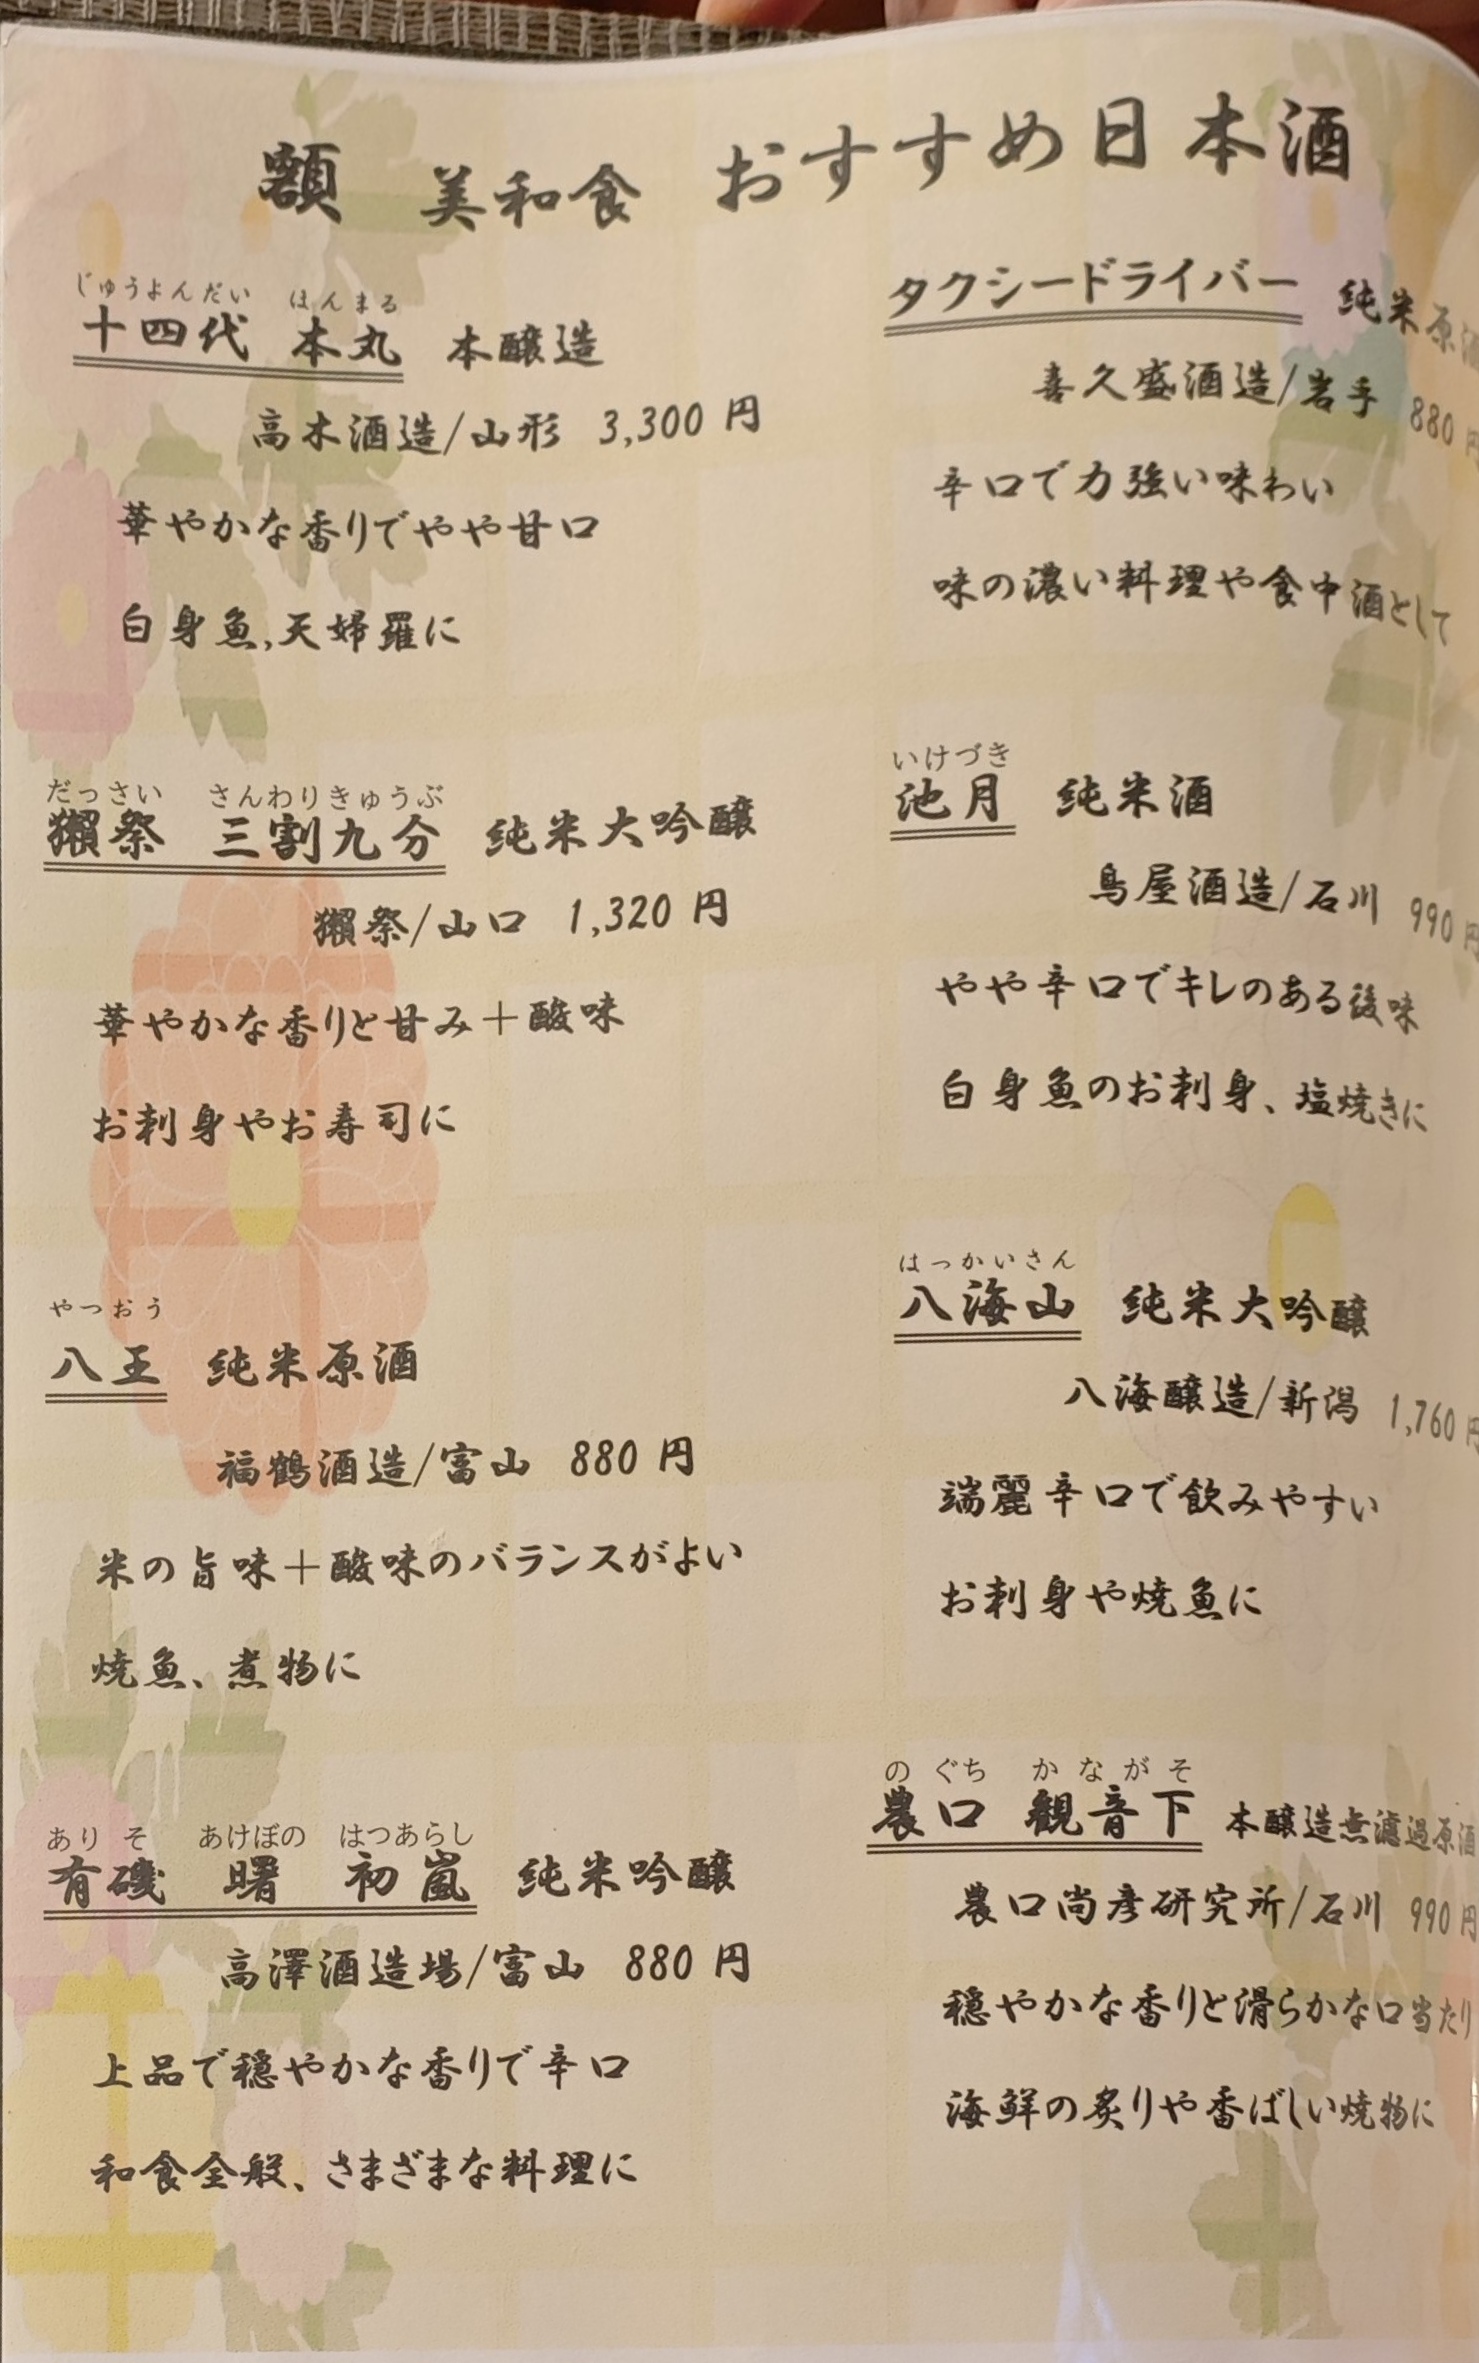 額 美和食 おすすめ日本酒
じゅうよんだい ほんまる
十四代 本丸 本醸造
高木酒造/山形 3,300 円
華やかな香りでやや甘口
白身魚,天婦羅に
だっさい さんわりきゅうぶ
獺祭 三割九分 純米大吟醸
獺祭/山口 1,320 円
華やかな香りと甘み＋酸味
お刺身やお寿司に
やつおう
八王 純米原酒
福鶴酒造/富山 880 円
米の旨味＋酸味のバランスがよい
焼魚、煮物に
ありそ あけぼの はつあらし
有磯 曙 初嵐 純米吟醸
高澤酒造場/富山 880 円
上品で穏やかな香りで辛口
和食全般、さまざまな料理に
タクシードライバー 純米原酒
喜久盛酒造/岩手 880 円
辛口で力強い味わい
味の濃い料理や食中酒として
いけづき
池月 純米酒
鳥屋酒造/石川 990 円
やや辛口でキレのある後味
白身魚のお刺身、塩焼きに
はっかいさん
八海山 純米大吟醸
八海醸造/新潟 1,760 円
端麗辛口で飲みやすい
お刺身や焼魚に
のぐち かながそ
農口 観音下 本醸造無濾過原酒
農口尚彦研究所/石川 990 円
穏やかな香りと滑らかな口当たり
海鮮の炙りや香ばしい焼物に